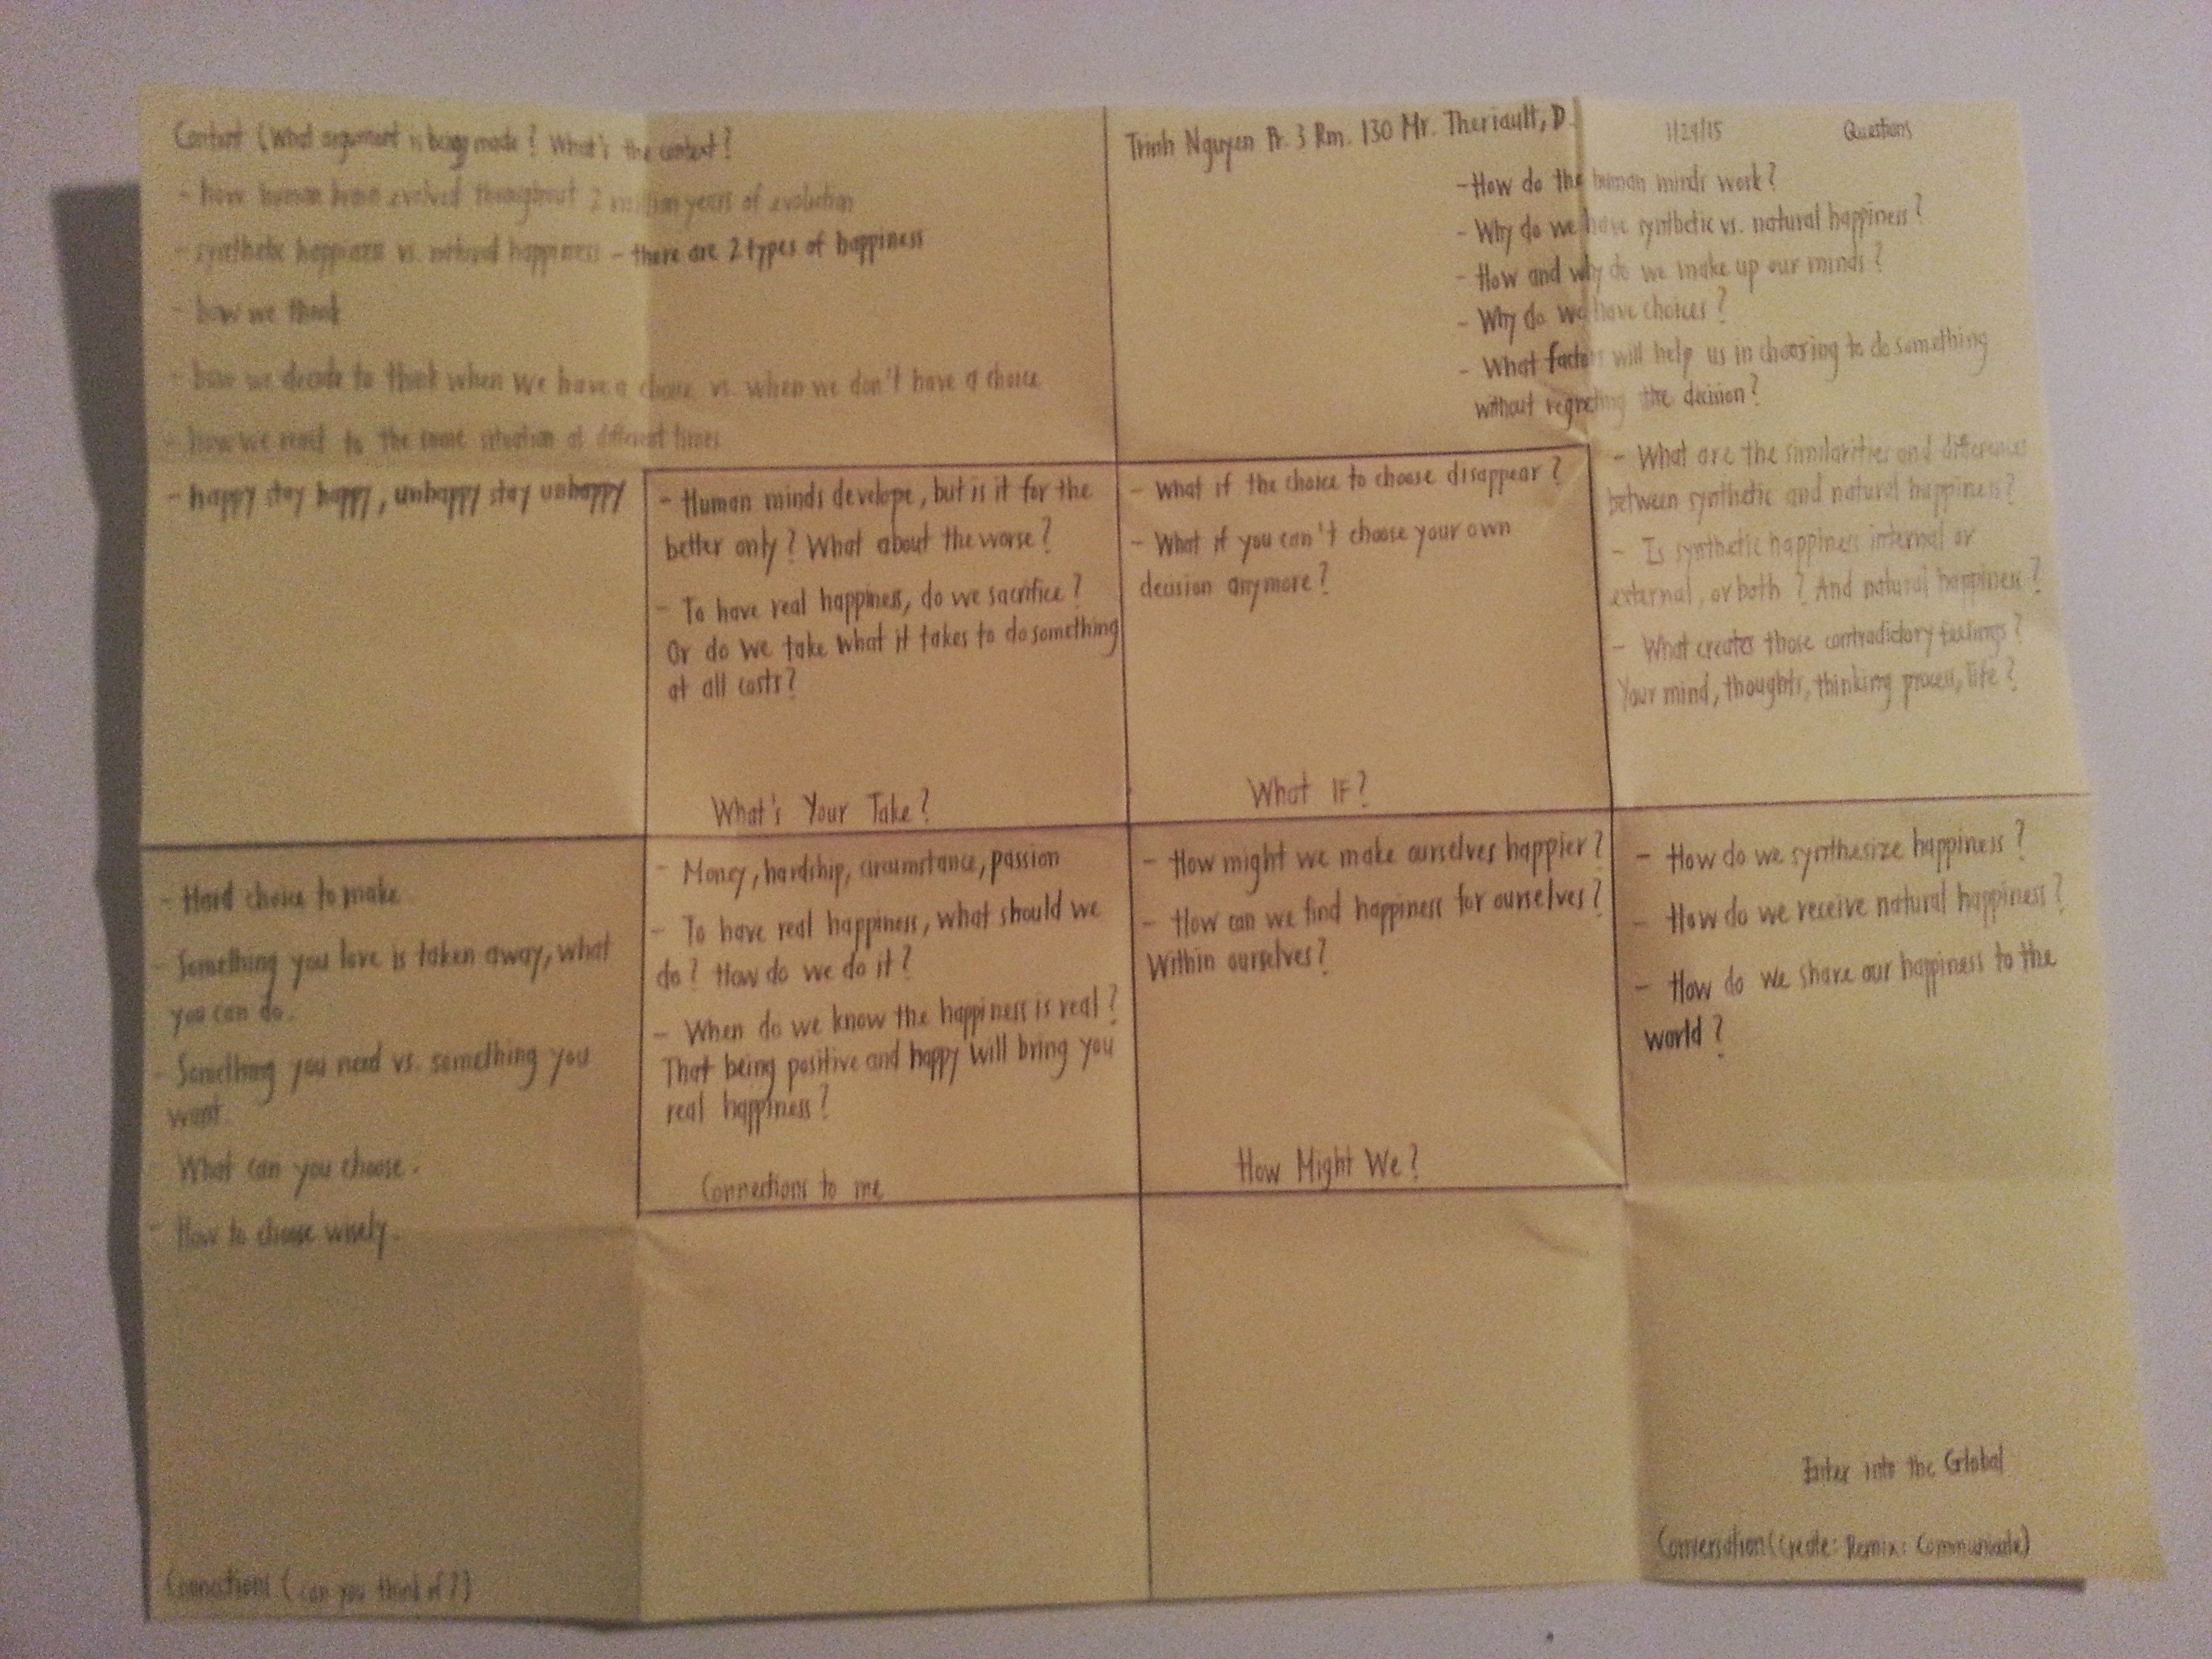 Content (What argument is being made? What's the context?
- how human brain evolved throughout 2 million years of evolution
- synthetic happiness vs. natural happiness - there are 2 types of happiness
- how we think
- how we decide to think when we have a choice vs. when we don't have a choice
- how we react to the same situation at different times
- happy stay happy, unhappy stay unhappy
Trinh Nguyen Pr. 3 Rm. 130 Mr. Theriault, D.
1/29/15 Questions
- How do the human minds work?
- Why do we have synthetic vs. natural happiness?
- How and why do we make up our minds?
- Why do we have choices?
- What factors will help us in choosing to do something
without regretting the decision?
- What are the similarities and differences
between synthetic and natural happiness?
- Is synthetic happiness internal or
external, or both? And natural happiness?
- What creates those contradictory feelings?
Your mind, thoughts, thinking process, life?
- Human minds develope, but is it for the
better only? What about the worse?
- To have real happiness, do we sacrifice?
Or do we take what it takes to do something
at all costs?
What's Your Take?
- What if the choice to choose disappear?
- What if you can't choose your own
decision anymore?
What IF?
- Hard choice to make
- Something you love is taken away, what
you can do.
- Something you need vs. something you
want.
What can you choose.
- How to choose wisely.
Connections (can you think of?)
- Money, hardship, circumstance, passion
- To have real happiness, what should we
do? How do we do it?
- When do we know the happiness is real?
That being positive and happy will bring you
real happiness?
Connections to me
- How might we make ourselves happier?
- How can we find happiness for ourselves?
Within ourselves?
How Might We?
- How do we synthesize happiness?
- How do we receive natural happiness?
- How do we share our happiness to the
world?
Enter into the Global
Conversation (Create: Remix: Communicate)